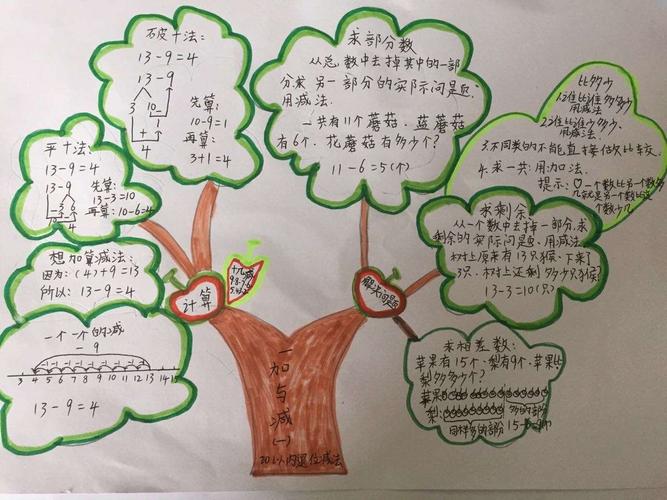 破十法:
13-9=4
13-9
3 10
1
+
4
先算:
10-9=1
再算:
3+1=4
平十法:
13-9=4
13-9
3 6
10
4
先算:
13-3=10
再算: 10-6=4
想加算减法:
因为: (4)+9=13
所以: 13-9=4
一个一个的减
-9
3 4 5 6 7 8 9 10 11 12 13 14 15
13-9=4
计算
十几减
一
加
与
减
(一)
20以内退位减法
解决问题
求部分数
从总数中去掉其中的一部
分求另一部分的实际问题
用减法.
一共有11个蘑菇. 蓝蘑菇
有6个. 花蘑菇有多少个?
11-6=5(个)
比多少
用减法
用减法.
3.不同类的不能直接估次比较.
4.求一共:用加法.
提示: ♡一个数比另一个数多
几就是另一个数比这
个数少几
求剩余
从一个数中去掉一部分.求
剩余的实际问题. 用减法
树上原来有13只猴. 下来了
3只. 树上还剩多少只猴?
13-3=10(只)
求相差数:
苹果有15个. 梨有9个. 苹果比
梨多多少个?
苹果
梨:
同样多的部分
多的部分